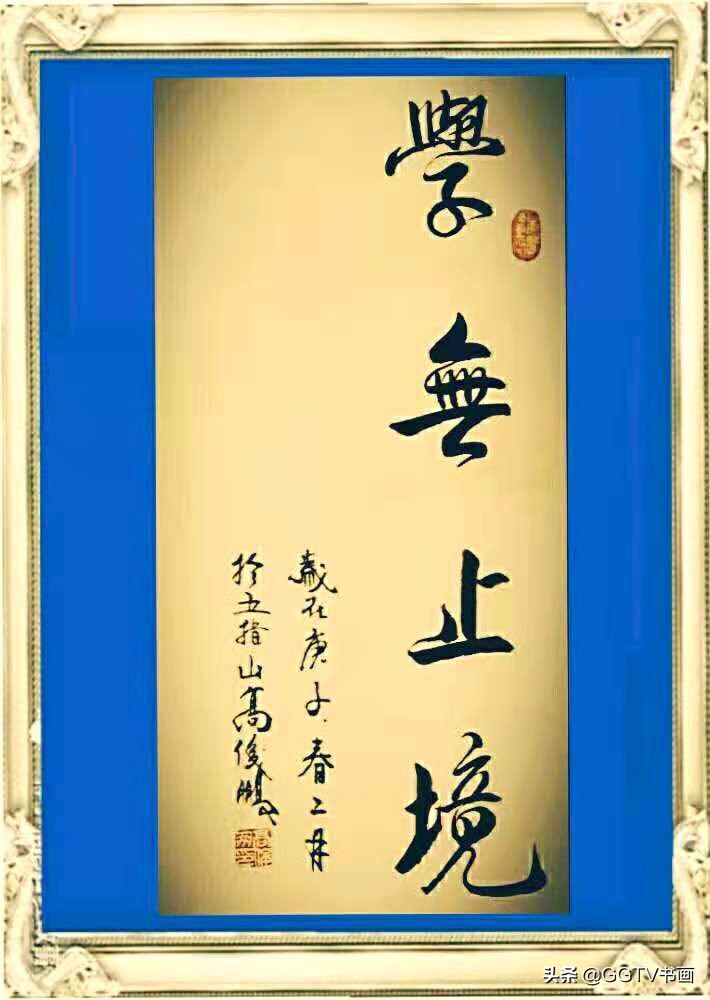 學無止境
歲在庚子春二月
於五指山高俊鵬
头条 @GGTV书画